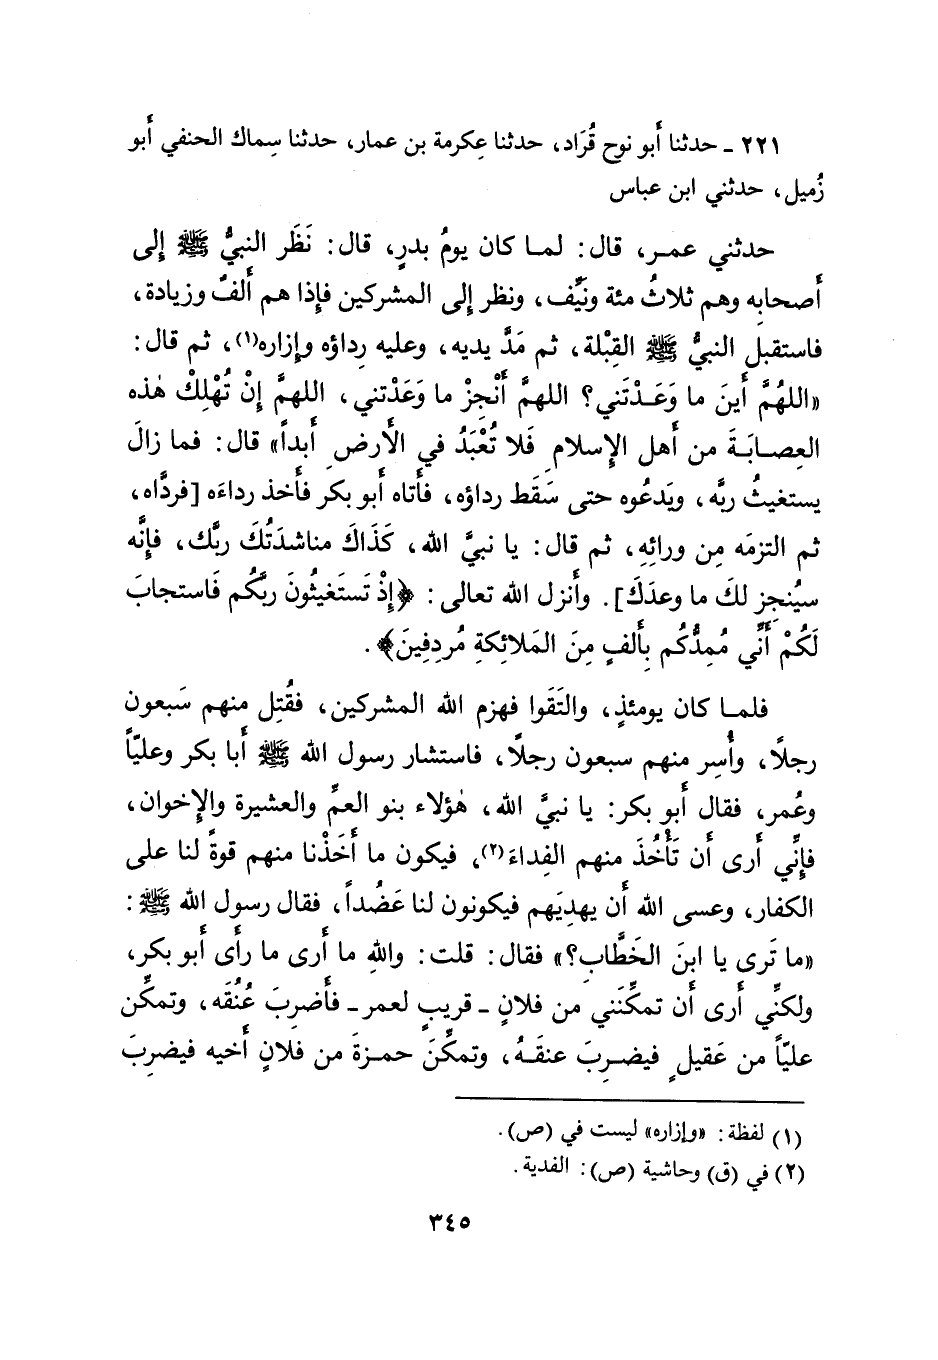 ٢٢١ ـ حدثنا أَبو نوح قُرَاد، حدثنا عِكرمة بن عمار، حدثنا سِماك الحنفي أَبو
زُميل، حدثني ابن عباس
حدثني عمـر، قال: لمـا كان يومُ بدرٍ، قال: نَظَر النبيُّ ﷺ إِلى
أَصحابِه وهم ثلاثُ مئة ونَيِّف، ونظر إِلى المشركين فإِذا هم أَلفٌ وزيادة،
فاستقبل النبيُّ ﷺ القِبْلة، ثم مَدَّ يديه، وعليه رِداؤه وإِزاره(١)، ثم قال:
«اللهُمَّ أَينَ ما وَعَـدْتَني؟ اللهمَّ أَنْجِزْ ما وَعَدْتني، اللهمَّ إِنْ تُهْلِكْ هٰذه
العِصـابَـةَ من أَهل الإِسلام فَلا تُعْبَدُ في الأَرضِ أَبداً» قال: فما زالَ
يستغيثُ ربَّه، ويَدعُوه حتى سَقَط رداؤه، فأَتاه أَبو بكر فأَخذ رداءَه [فردَّاه،
ثم التزمَه مِن ورائِهِ، ثم قال: يا نبيَّ الله، كَذَاكَ مناشدَتُكَ ربَّك، فإِنَّه
سيُنجِز لكَ ما وعدَكَ]. وأَنزل الله تعالى: ﴿إِذْ تَستَغيثُونَ ربَّكُم فَاستجابَ
لَكُمْ أَنِّي مُمِدُّكُم بِأَلفٍ مِنَ المَلائِكةِ مُردِفِينَ﴾.
فلمـا كان يومئذٍ، والتَقَوا فهزم الله المشركين، فقُتِل منهم سَبعون
رجلًا، وأُسِر منهم سبعون رجلًا، فاستشار رسول الله ﷺ أَبا بكر وعليّاً
وعُمر، فقال أَبو بكر: يا نبيَّ الله، هٰؤلاء بنو العمِّ والعشيرة والإِخوان،
فإِنِّي أَرى أَن تَأْخُذَ منهم الفِداءَ(٢)، فيكون ما أَخَذْنا منهم قوةً لنا على
الكفار، وعسى الله أَن يهديَهم فيكونون لنا عَضُداً، فقال رسول الله ﷺ:
«ما تَرى يا ابنَ الخَطَّابِ؟» فقال: قلت: واللهِ ما أَرى ما رأَى أَبو بكر،
ولكنِّي أَرى أَن تمكِّنَني من فلانٍ ـ قريبٍ لعمر ـ فأَضرِبَ عُنُقَه، وتمكِّن
عليّاً من عَقيلٍ فيضـرِبَ عنقَـهُ، وتمكِّنَ حمـزةَ من فلانٍ أَخيه فيضرِبَ
(١) لفظة: «وإزاره» ليست في (ص).
(٢) في (ق) وحاشية (ص): الفدية.
٣٤٥